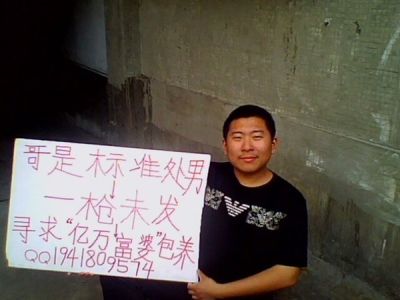 哥是标准处男
↓
一枪未发
↓
寻求“亿万富婆”包养
QQ1941809574